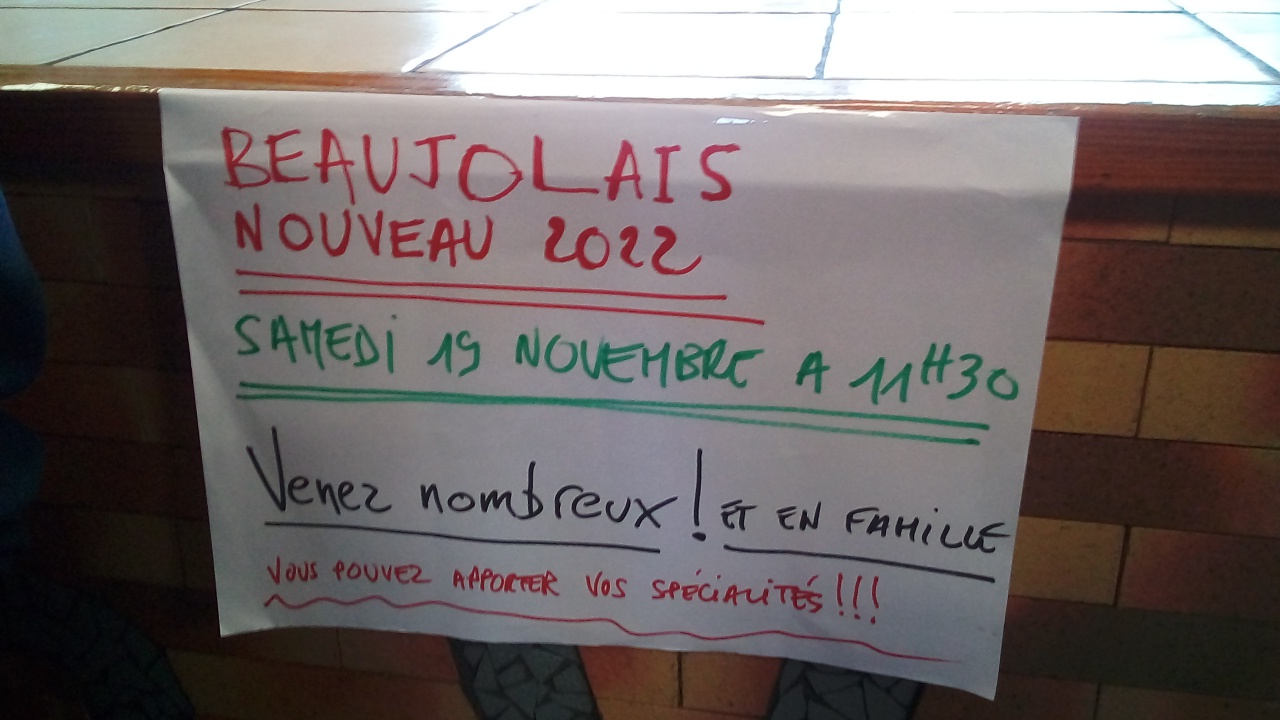 BEAUJOLAIS
NOUVEAU 2022
SAMEDI 19 NOVEMBRE A 11H30
Venez nombreux ! ET EN FAMILLE
VOUS POUVEZ APPORTER VOS SPÉCIALITÉS !!!